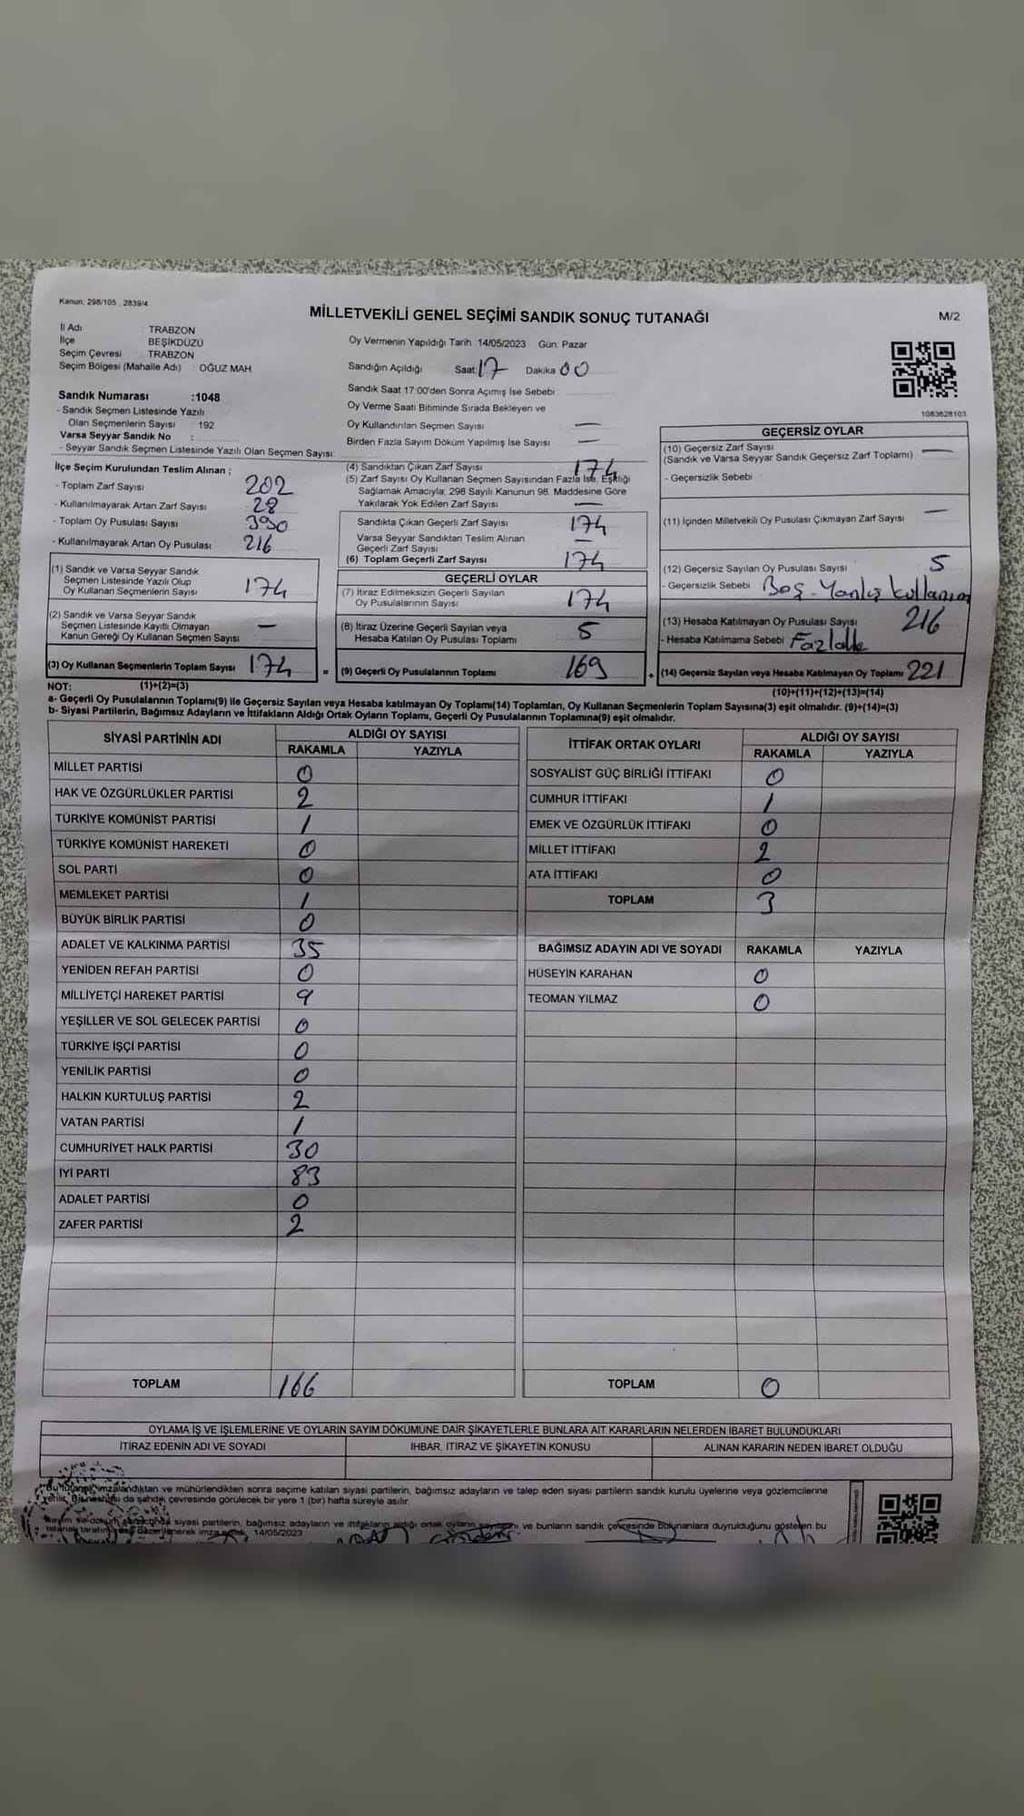 Kanun: 298/105 , 2839/4
MİLLETVEKİLİ GENEL SEÇİMİ SANDIK SONUÇ TUTANAĞI
M/2
İl Adı : TRABZON
İlçe : BEŞİKDÜZÜ
Seçim Çevresi : TRABZON
Seçim Bölgesi (Mahalle Adı) : OĞUZ MAH.
Sandık Numarası :1048
- Sandık Seçmen Listesinde Yazılı
Olan Seçmenlerin Sayısı : 192
Varsa Seyyar Sandık No :
- Seyyar Sandık Seçmen Listesinde Yazılı Olan Seçmen Sayısı:
Oy Vermenin Yapıldığı Tarih 14/05/2023 Gün: Pazar
Sandığın Açıldığı Saat 17 Dakika 00
Sandık Saat 17:00'den Sonra Açımış İse Sebebi
Oy Verme Saati Bitiminde Sırada Bekleyen ve
Oy Kullandırılan Seçmen Sayısı —
Birden Fazla Sayım Döküm Yapılmış İse Sayısı —
1083628103
İlçe Seçim Kurulundan Teslim Alınan ;
- Toplam Zarf Sayısı 202
- Kullanılmayarak Artan Zarf Sayısı 28
- Toplam Oy Pusulası Sayısı 390
- Kullanılmayarak Artan Oy Pusulası 216
(1) Sandık ve Varsa Seyyar Sandık
Seçmen Listesinde Yazılı Olup
Oy Kullanan Seçmenlerin Sayısı 174
(2) Sandık ve Varsa Seyyar Sandık
Seçmen Listesinde Kayıtlı Olmayan
Kanun Gereği Oy Kullanan Seçmen Sayısı —
(3) Oy Kullanan Seçmenlerin Toplam Sayısı 174 =
(1)+(2)=(3)
(4) Sandıktan Çıkan Zarf Sayısı 174
(5) Zarf Sayısı Oy Kullanan Seçmen Sayısından Fazla İse, Eşitliği
Sağlamak Amacıyla; 298 Sayılı Kanunun 98. Maddesine Göre
Yakılarak Yok Edilen Zarf Sayısı —
Sandıkta Çıkan Geçerli Zarf Sayısı 174
Varsa Seyyar Sandıktan Teslim Alınan
Geçerli Zarf Sayısı —
(6) Toplam Geçerli Zarf Sayısı 174
GEÇERLİ OYLAR
(7) İtiraz Edilmeksizin Geçerli Sayılan
Oy Pusulalarının Sayısı 174
(8) İtiraz Üzerine Geçerli Sayılan veya
Hesaba Katılan Oy Pusulası Toplamı 5
(9) Geçerli Oy Pusulalarının Toplamı 169 +
GEÇERSİZ OYLAR
(10) Geçersiz Zarf Sayısı
(Sandık ve Varsa Seyyar Sandık Geçersiz Zarf Toplamı) —
- Geçersizlik Sebebi
(11) İçinden Milletvekili Oy Pusulası Çıkmayan Zarf Sayısı —
(12) Geçersiz Sayılan Oy Pusulası Sayısı 5
- Geçersizlik Sebebi Boş - Yanlış kullanım
(13) Hesaba Katılmayan Oy Pusulası Sayısı 216
- Hesaba Katılmama Sebebi
(14) Geçersiz Sayılan veya Hesaba Katılmayan Oy Toplamı 221
(10)+(11)+(12)+(13)=(14)
NOT:
a- Geçerli Oy Pusulalarının Toplamı(9) ile Geçersiz Sayılan veya Hesaba katılmayan Oy Toplamı(14) Toplamları, Oy Kullanan Seçmenlerin Toplam Sayısına(3) eşit olmalıdır. (9)+(14)=(3)
b- Siyasi Partilerin, Bağımsız Adayların ve İttifakların Aldığı Ortak Oyların Toplamı, Geçerli Oy Pusulalarının Toplamına(9) eşit olmalıdır.
SİYASİ PARTİNİN ADI
ALDIĞI OY SAYISI
RAKAMLA YAZIYLA
MİLLET PARTİSİ 0
HAK VE ÖZGÜRLÜKLER PARTİSİ 2
TÜRKİYE KOMÜNİST PARTİSİ 1
TÜRKİYE KOMÜNİST HAREKETİ 0
SOL PARTİ 0
MEMLEKET PARTİSİ 1
BÜYÜK BİRLİK PARTİSİ 0
ADALET VE KALKINMA PARTİSİ 35
YENİDEN REFAH PARTİSİ 0
MİLLİYETÇİ HAREKET PARTİSİ 9
YEŞİLLER VE SOL GELECEK PARTİSİ 0
TÜRKİYE İŞÇİ PARTİSİ 0
YENİLİK PARTİSİ 0
HALKIN KURTULUŞ PARTİSİ 2
VATAN PARTİSİ 1
CUMHURİYET HALK PARTİSİ 30
İYİ PARTİ 83
ADALET PARTİSİ 0
ZAFER PARTİSİ 2
TOPLAM 166
İTTİFAK ORTAK OYLARI
ALDIĞI OY SAYISI
RAKAMLA YAZIYLA
SOSYALİST GÜÇ BİRLİĞİ İTTİFAKI 0
CUMHUR İTTİFAKI 1
EMEK VE ÖZGÜRLÜK İTTİFAKI 0
MİLLET İTTİFAKI 2
ATA İTTİFAKI 0
TOPLAM 3
BAĞIMSIZ ADAYIN ADI VE SOYADI RAKAMLA YAZIYLA
HÜSEYİN KARAHAN 0
TEOMAN YILMAZ 0
TOPLAM 0
OYLAMA İŞ VE İŞLEMLERİNE VE OYLARIN SAYIM DÖKÜMÜNE DAİR ŞİKAYETLERLE BUNLARA AİT KARARLARIN NELERDEN İBARET BULUNDUKLARI
İTİRAZ EDENİN ADI VE SOYADI İHBAR, İTİRAZ VE ŞİKAYETİN KONUSU ALINAN KARARIN NEDEN İBARET OLDUĞU
Bu tutanak imzalandıktan ve mühürlendikten sonra seçime katılan siyasi partilerin, bağımsız adayların ve talep eden siyasi partilerin sandık kurulu üyelerine veya gözlemcilerine
verilir. Bir nüshası da sandık çevresinde görülecek bir yere 1 (bir) hafta süreyle asılır.
siyasi partilerin, bağımsız adayların ve ittifakların aldığı ortak oyların ve bunların sandık çevresinde bulunanlara duyrulduğunu gösteren bu
14/05/2023